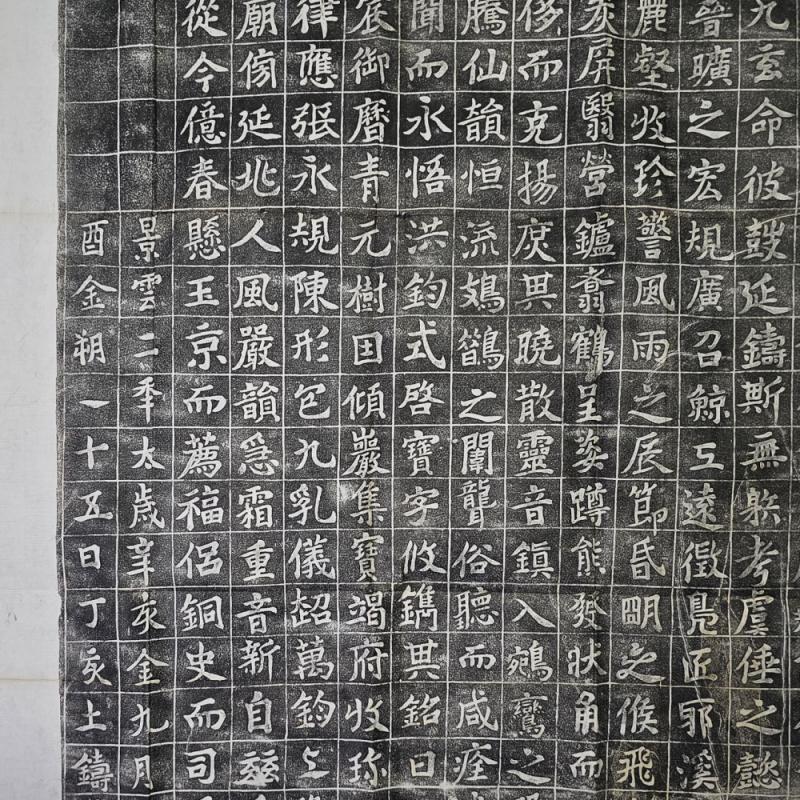 玄命彼鼓延鑄斯無躲考虞倕之懿
晉曠之宏規廣召鯨工遠徵鳧匠耶溪
麗壑收珍警風雨之辰節昏明之候飛
炭屏翳營鑪翥鶴呈姿蹲熊發狀角而
侈而克揚庾其曉散靈音鎮入鵷鸞之
騰仙韻恒流鳷鵲之闈聾俗聽而咸痊
聞而永悟洪鈞式啓寶字攸鐫其銘曰
宸御曆青元樹因傾巖集寶竭府收珍
律應張永規陳形包九乳儀超萬鈞上
廟傍延兆人風嚴韻急霜重音新自茲
從今億春懸玉京而薦福侶銅史而司
景雲二年太歲辛亥金九月
酉金朔一十五日丁亥土鑄